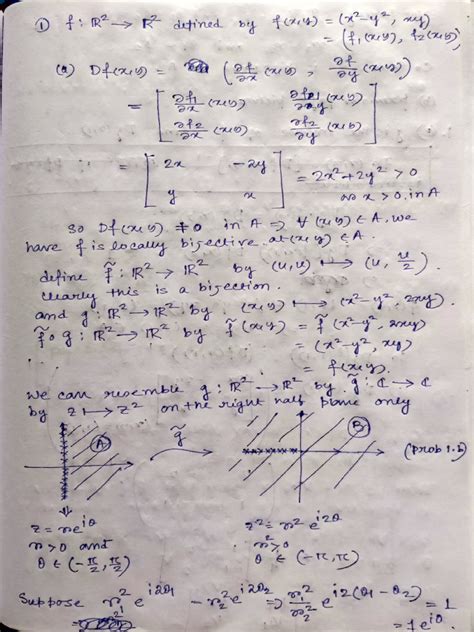 ① f: ℝ² → ℝ² defined by f(x,y) = (x²-y², xy)
= (f₁(x,y), f₂(x,y))
(a) Df(x,y) = (∂f/∂x (x,y), ∂f/∂y (x,y))
= [ ∂f₁/∂x (x,y) ∂f₁/∂y (x,y)
∂f₂/∂x (x,y) ∂f₂/∂y (x,y) ]
= [ 2x -2y
y x ] = 2x²+2y² > 0
as x>0 in A
So Df(x,y) ≠ 0 in A ⇒ ∀ (x,y) ∈ A, we
have f is locally bijective at (x,y) ∈ A.
define f̃: ℝ² → ℝ² by (u,v) ↦ (u, v/2).
clearly this is a bijection.
and g: ℝ² → ℝ² by (x,y) ↦ (x²-y², 2xy).
f̃∘g: ℝ² → ℝ² by f̃(x,y) = f̃(x²-y², 2xy)
= (x²-y², xy)
= f(x,y).
we can resemble g: ℝ² → ℝ² by g̃: ℂ → ℂ
by z ↦ z² on the right half plane only
A g̃ B (Prob 1.b)
z = re^{iθ} z² = r² e^{i2θ}
r>0 and r²>0
θ ∈ (-π/2, π/2) θ ∈ (-π, π)
Suppose r₁² e^{i2θ₁} = r₂² e^{i2θ₂} ⇒ r₁²/r₂² e^{i2(θ₁-θ₂)} = 1
= 1e^{i0}